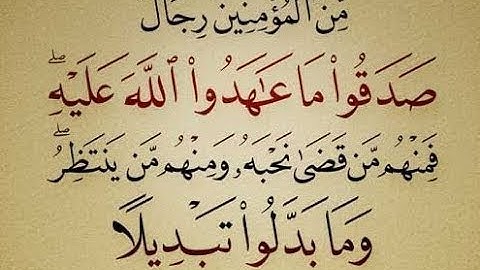 مِّنَ الْمُؤْمِنِينَ رِجَالٌ
صَدَقُوا۟ مَا عَـٰهَدُوا۟ ٱللَّهَ عَلَيْهِ ۖ
فَمِنْهُم مَّن قَضَىٰ نَحْبَهُۥ وَمِنْهُم مَّن يَنتَظِرُ ۖ
وَمَا بَدَّلُوا۟ تَبْدِيلًا